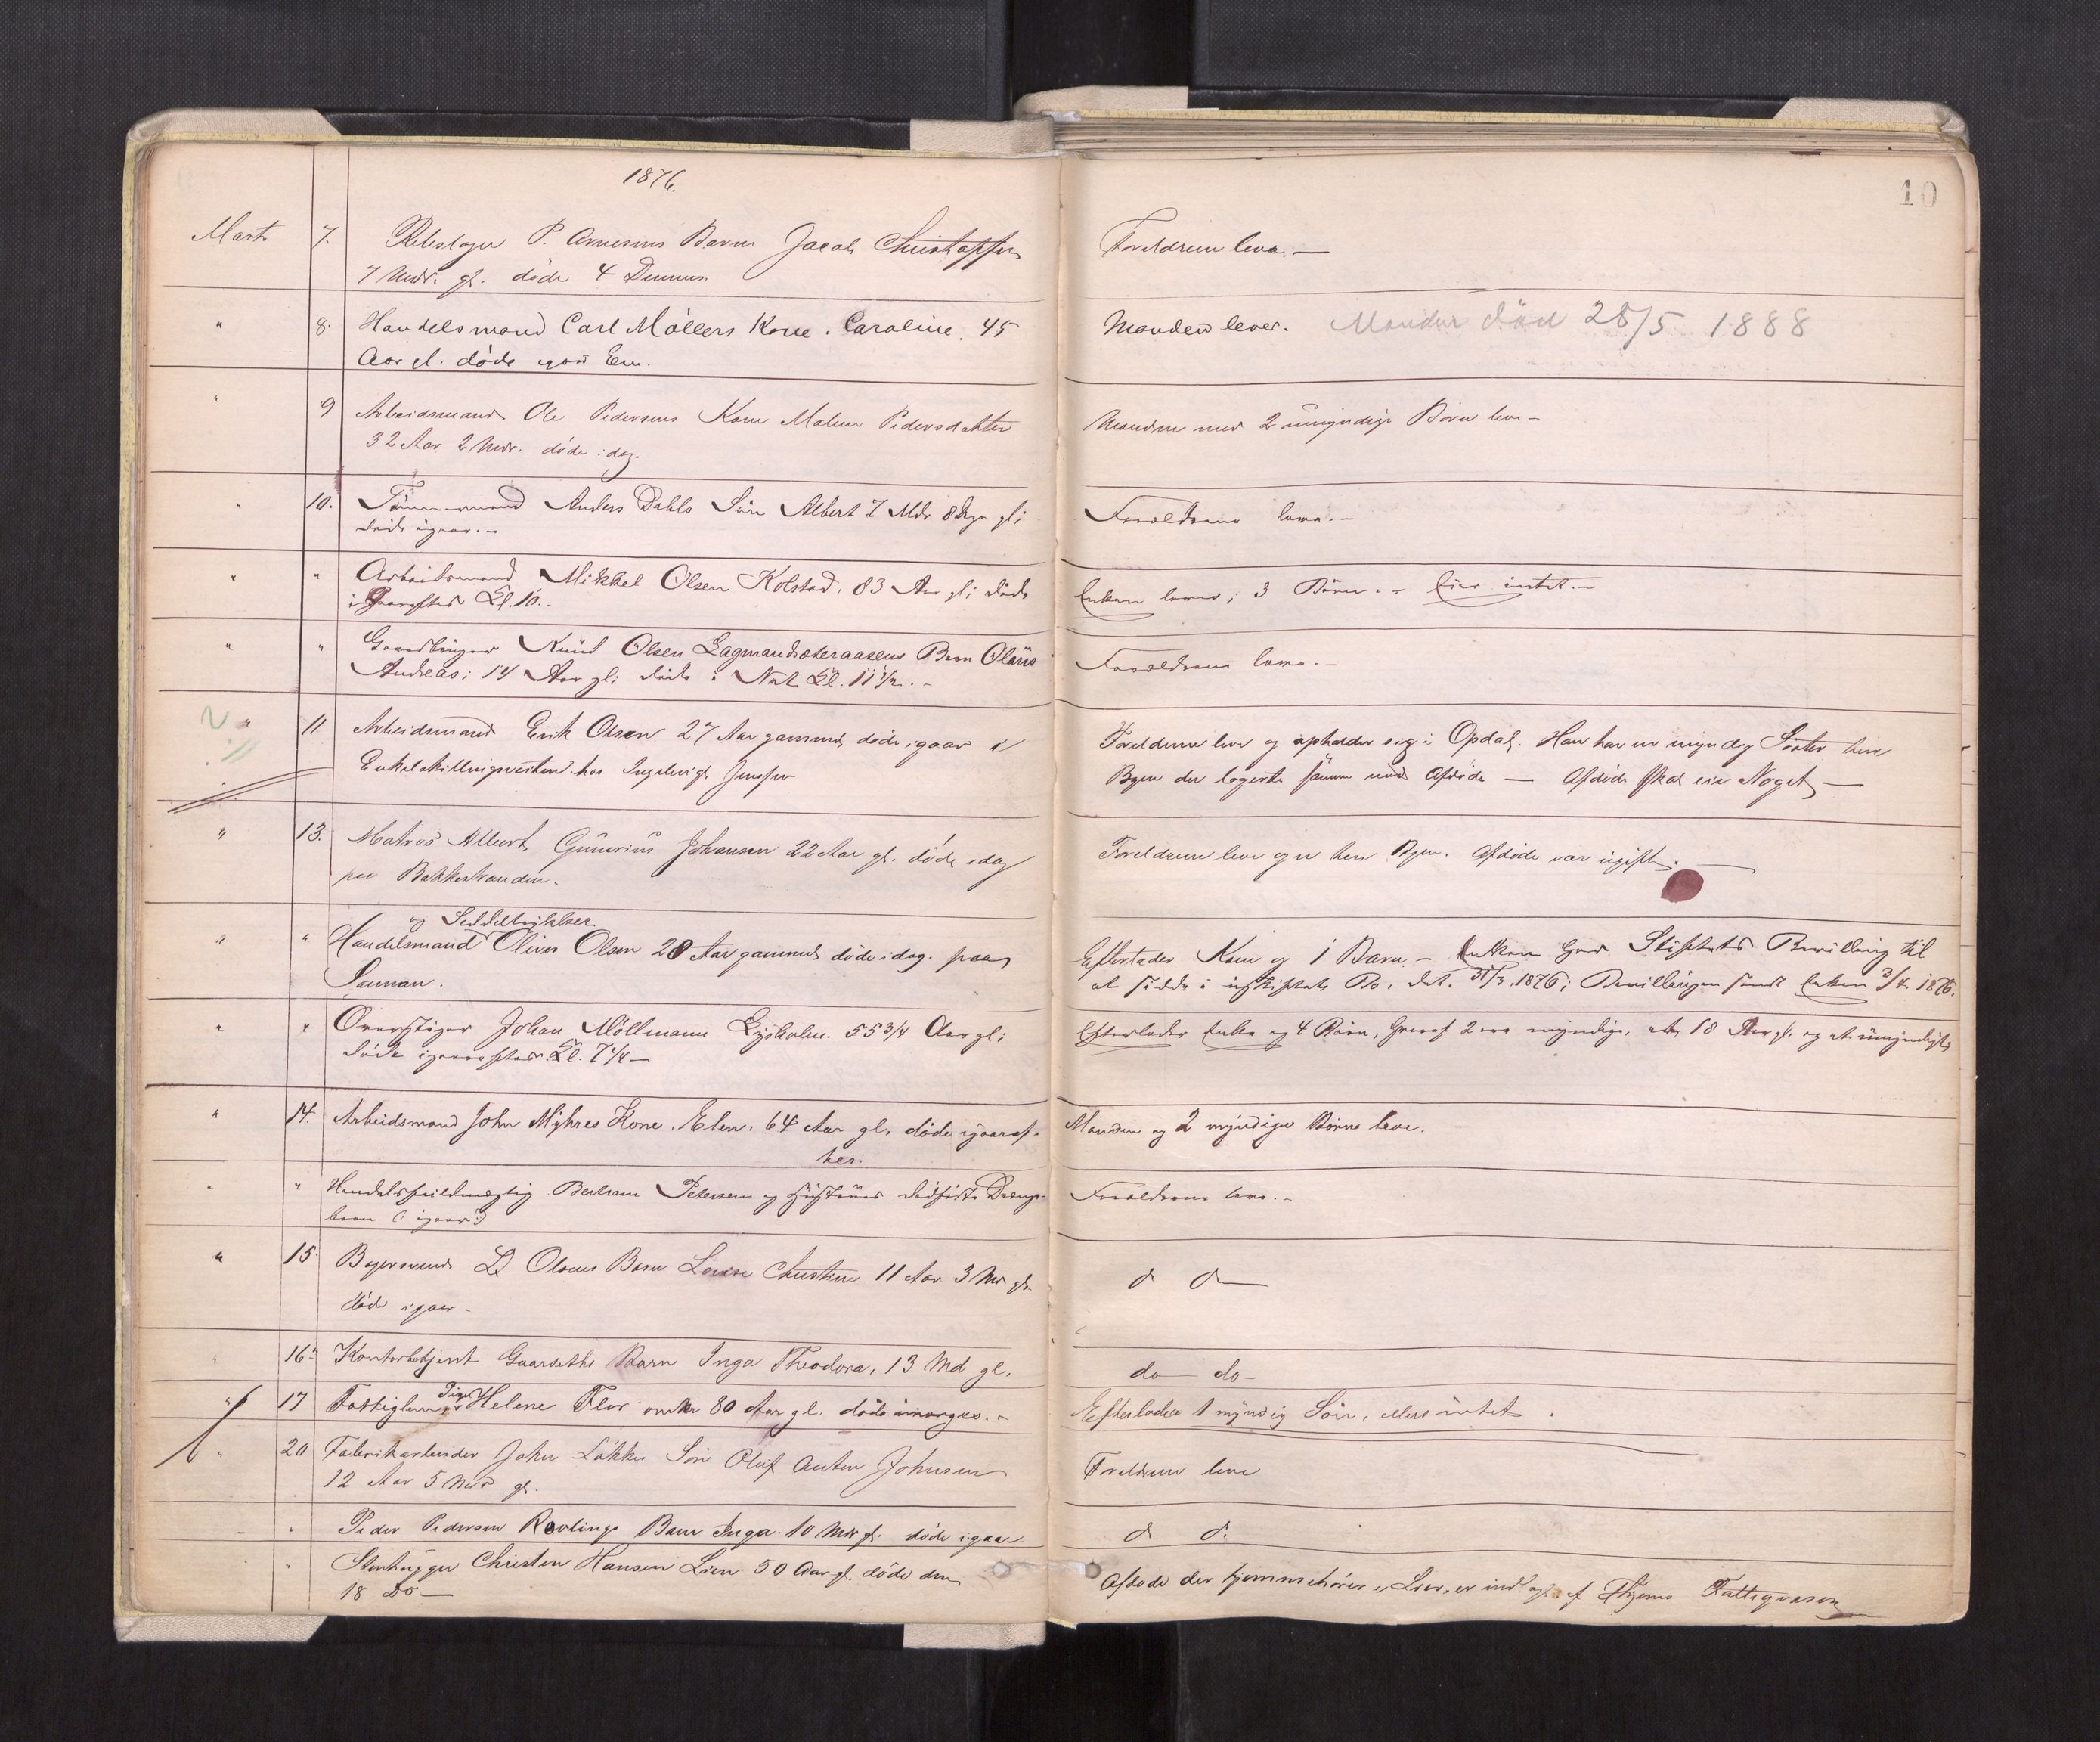 1876.
10
Marts 7. P. Arnesens Barn Jacob Christoffer
7 Mdr. gl. døde 4 Dennes
Forældrene leve. —
" 8. Handelsmand Carl Möllers Kone. Caroline. 45
Aar gl. døde igaar Em.
Manden lever. Manden död 28/5 1888
" 9 Arbeidsmand Ole Pedersens Kone Malene Pedersdatter
32 Aar 2 Mdr. døde idag.
Manden med 2 umyndige Börn leve —
" 10. Tömmermand Anders Dahls Sön Albert 7 Mdr 8 Dge gl;
döde igaar. —
Forældrene leve. —
" " Arbeidsmand Mikkel Olsen Kolstad, 83 Aar gl; döde
igaaraftes Kl. 10. —
Enken lever; 3 Börn. — Eier intet. —
" " Gaardbruger Knud Olsen Lagmandsæteraasens Barn Olaus
Andreas; 14 Aar gl; döde i Nat Kl. 11 1/2. —
Forældrene leve. —
" 11 Arbeidsmand Erik Olsen 27 Aar gammel døde igaar i
Enkeltskillingsveiten hos Ingebrigt Jenssen
Foreldrene leve og opholder sig i Opdal. Han har en myndig Søster her i
Byen der logerte sammen med Afdøde — Afdøde skal eie Noget —
" 13. Matros Albert Gunerius Johansen 22 Aar gl. døde idag
paa Bakkestranden.
Foreldrene leve og er her i Byen. Afdøde var ugift. —
" " og Seddeltrykker
Handelsmand Oliver Olsen 28 Aar gammel døde idag paa
Efterlader Kone og 1 Barn. — Enken har Stiftets Bevilling til
at sidde i uskiftet Bo, dat. 31/3 1876; Bevillingen sendt Enken 3/4 1876.
" " Overstiger Johan Möllmann Lysholm. 55 3/4 Aar gl;
döde igaaraftes Kl. 7 1/4 —
Efterlader Enke og 4 Börn, hvoraf 2 ere myndige, et 18 Aar gl. og et umyndigt
" 14. Arbeidsmand John Myhres Kone, Elen, 64 Aar gl, døde igaaraf-
tes.
Manden og 2 myndige Børn leve.
" " Handelsfuldmægtig Bertram Petersen og Hustrues dödfödte Drenge-
barn (: igaar :)
Forældrene leve. —
" 15. Bagersvend L Olsens Barn Louise Christine 11 Aar 3 Md gl.
død igaar —
d d —
" 16. Kontorbetjent Gaarseths Barn Inga Theodora, 13 Md gl.
do do —
" 17 Fattiglem Pige Helene Flor omtr 80 Aar gl. döde imorges. —
Efterlader 1 myndig Sön, ellers intet.
" 20 Fabrikarbeider John Løkkes Søn Oluf Anton Johnsen
12 Aar 5 Mdr gl.
Foreldrene leve
" " Peder Pedersen Rovlings Barn Inga 10 Mdr gl. døde igaar.
d d.
" Stenhugger Christen Hansen Lien 50 Aar gl. døde den
18 Do —
Afdøde der hjemmehører i Lier, er indlagt af Thjems Fattigvæsen